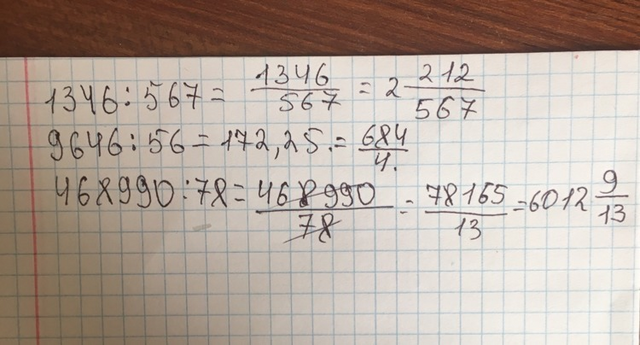 1346:567= 1346/567 = 2 212/567
9646:56=172,25.= 684/4.
468990:78= 468990/78 = 78165/13 =6012 9/13